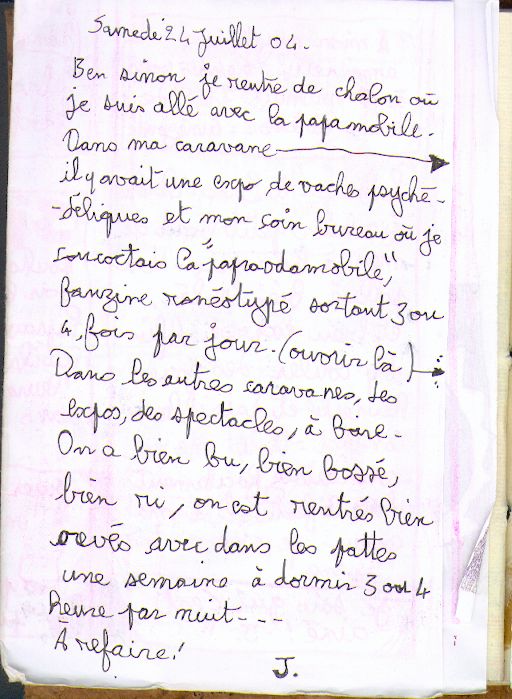 Samedi 24 Juillet 04.
Ben sinon je rentre de chalon où
je suis allé avec la papamobile.
Dans ma caravane
il y avait une expo de vaches psyché-
-déliques et mon coin bureau où je
concoctais la "papaodamobile",
fanzine ronéotypé sortant 3 ou
4 fois par jour. (ouvrir là)
Dans les autres caravanes, des
expos, des spectacles, à boire.
On a bien bu, bien bossé,
bien ri, on est rentrés bien
crevés avec dans les pattes
une semaine à dormir 3 ou 4
heure par nuit---
À refaire!
J.